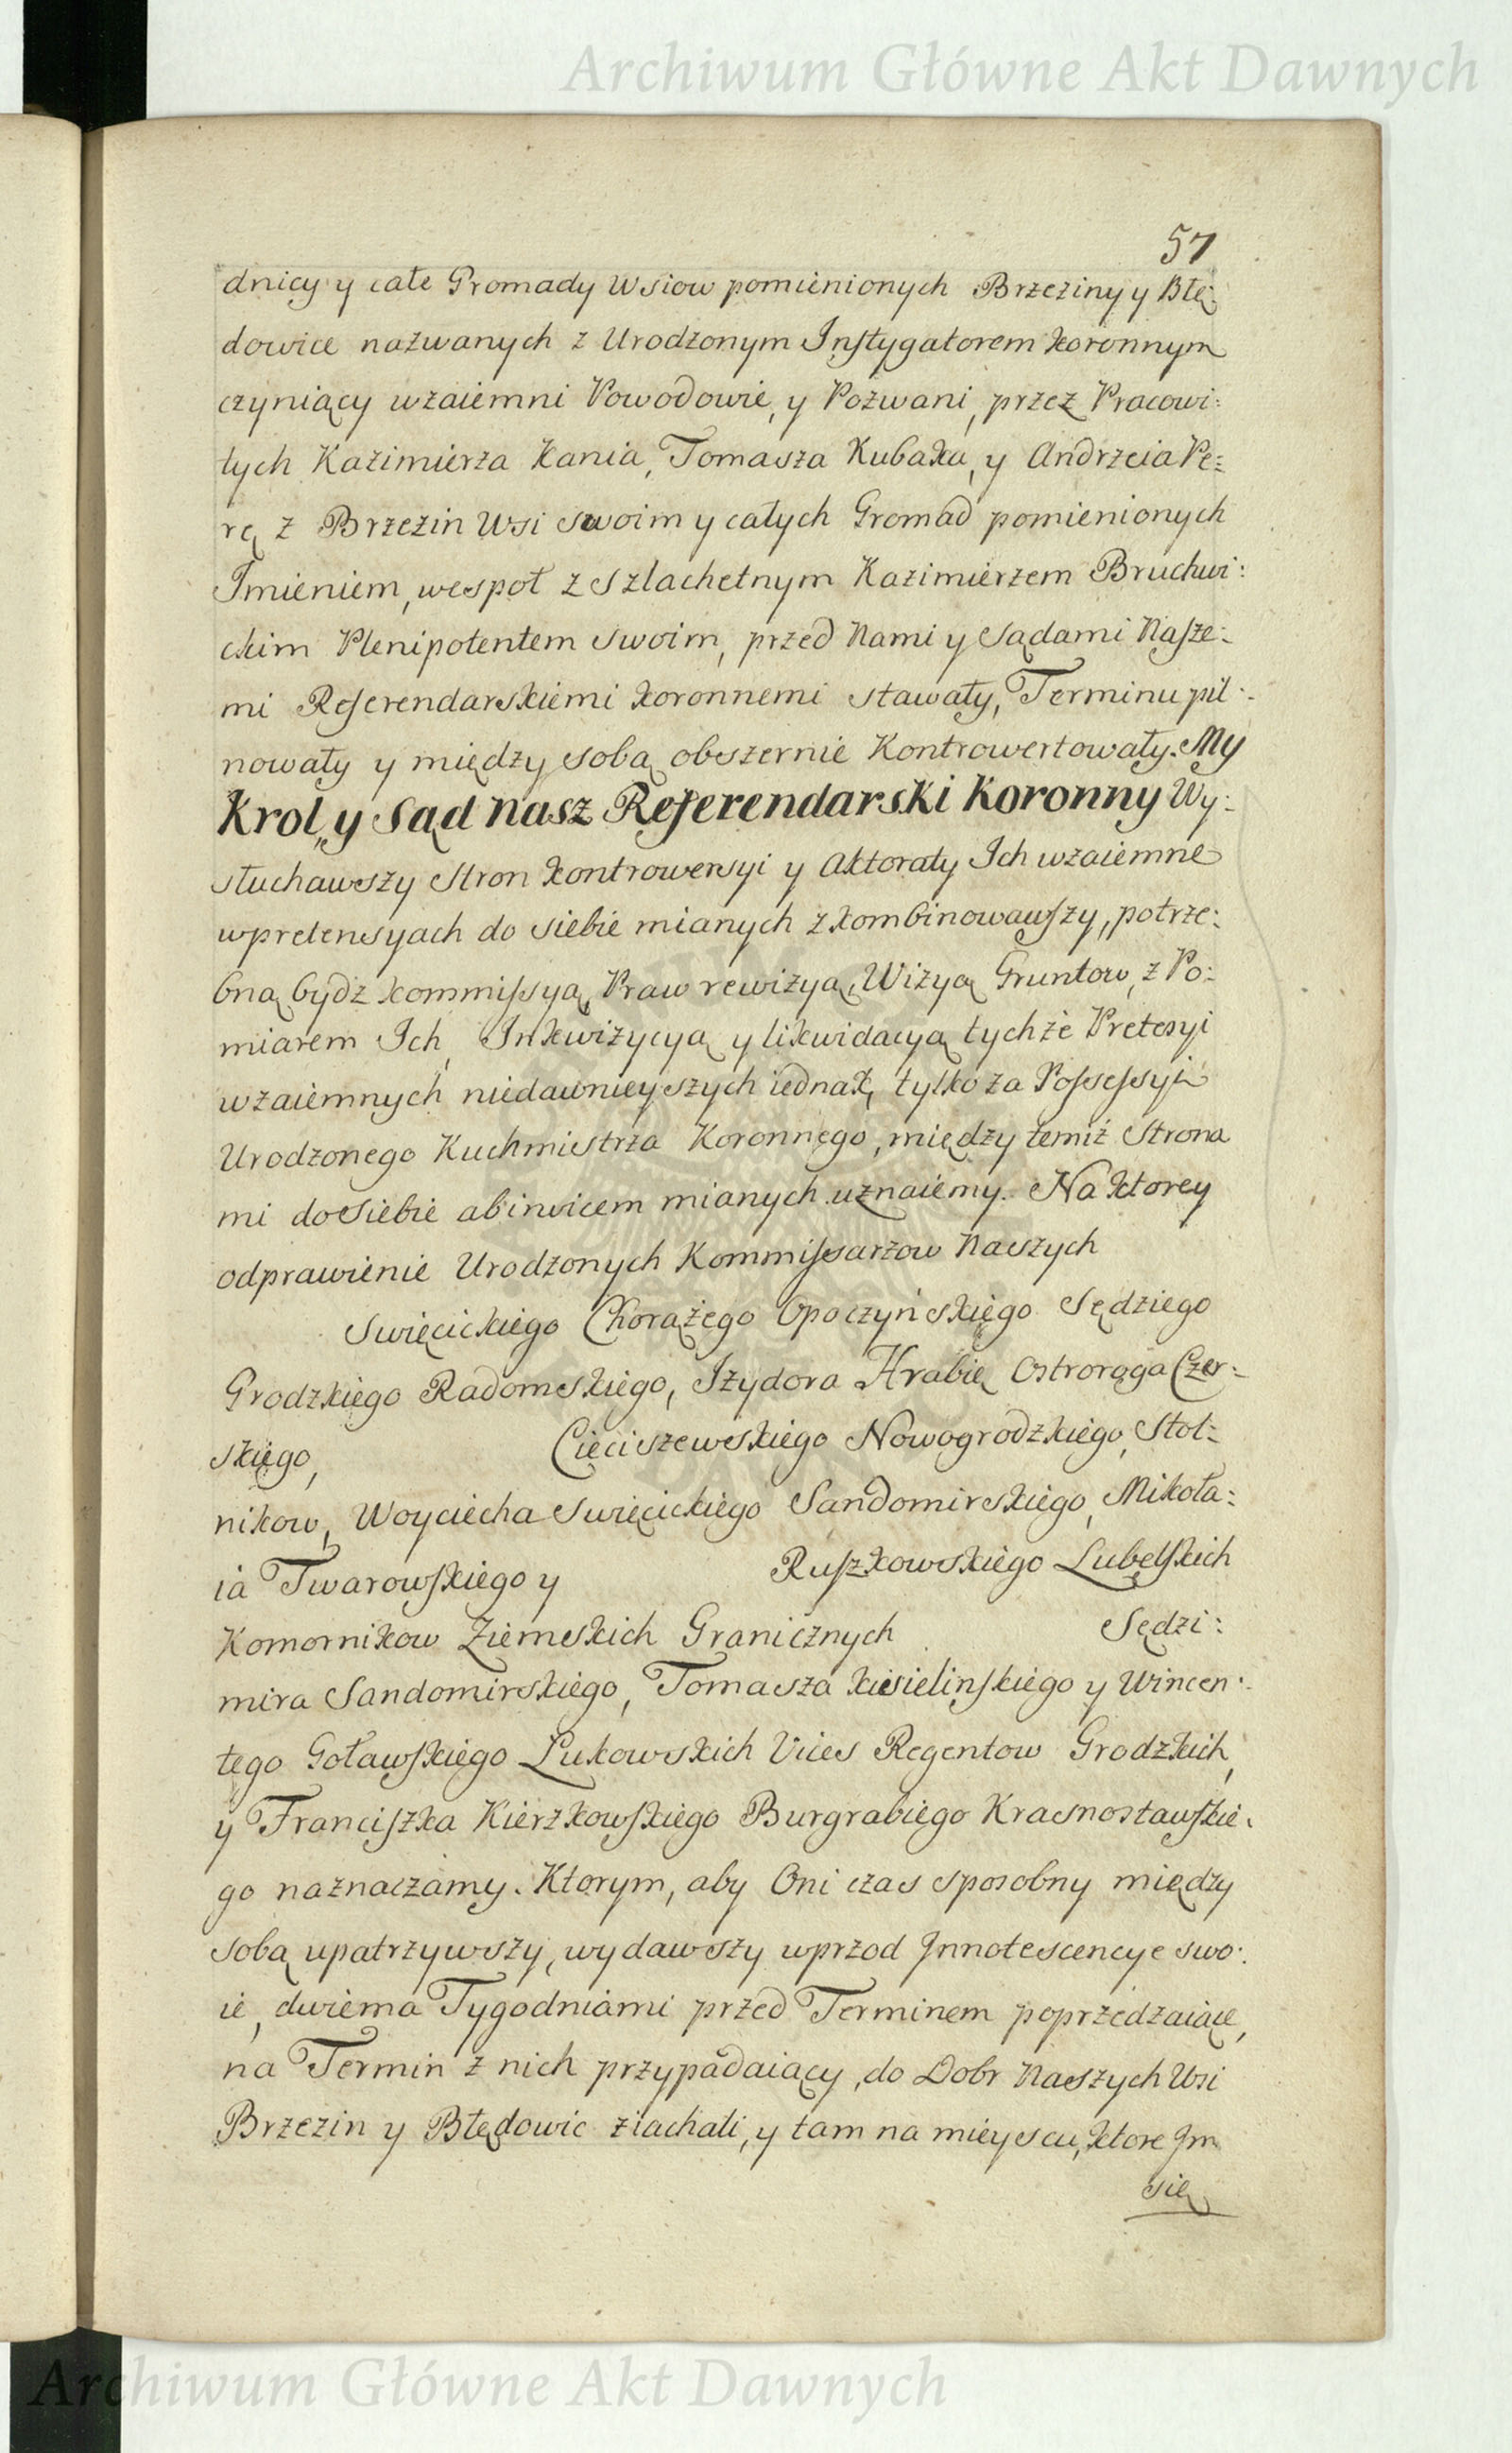 Archiwum Główne Akt Dawnych
57
dnicy y całe Gromady Wsiow pomienionych Brzeziny y Błę:
dowice nazwanych z Urodzonym Instygatorem Koronnym
czyniący wzaiemni Powodowie, y Pozwani, przez Pracowi:
tych Kazimierza Kania, Tomasza Kubaka, y Andrzeia Pe:
rę z Brzezin Wsi swoim y całych Gromad pomienionych
Imieniem, wespoł z Szlachetnym Kazimierzem Bruchwi:
ckim Plenipotentem swoim, przed Nami y Sądami Nasze:
mi Referendarskiemi Koronnemi stawały, Terminu pil:
nowały y między sobą obszernie Kontrowertowały. My
Krol, y Sąd nasz Referendarski Koronny Wy:
słuchawszy Stron kontrowersyi y Aktoraty Ich wzaiemne
wpretensyach do siebie mianych zkombinowawszy, potrze:
bną bydz kommissyą, Praw rewizyą, Wizyą Gruntow, z Po:
miarem Ich, Inkwizycyą y likwidacyą tychże Pretesyi
wzaiemnych niedawnieyszych iednak, tylko za Possessyi
Urodzonego Kuchmistrza Koronnego, między temiż Strona
mi do siebie abinvicem mianych uznaiemy. Na ktorey
odprawienie Urodzonych Kommissarzow Naszych
Swięcickiego Chorążego Opoczyńskiego Sędziego
Grodzkiego Radomskiego, Izydora Hrabię Ostroroga Czer:
skiego, Cieciszewskiego Nowogrodzkiego, Stol:
nikow, Woyciecha Swięcickiego Sandomirskiego, Mikoła:
ia Twarowskiego y Ruszkowskiego Lubelskich
Komornikow Ziemskich Granicznych Sędzi:
mira Sandomirskiego, Tomasza Kisielinskiego y Wincen:
tego Goławskiego Łukowskich Vices Regentow Grodzkich,
y Franciszka Kierzkowskiego Burgrabiego Krasnostawskie:
go naznaczamy. Ktorym, aby Oni czas sposobny między
sobą upatrzywszy, wydawszy wprzod Innotescencye swo:
ie, dwiema Tygodniami przed Terminem poprzedzaiące,
na Termin z nich przypadaiący, do Dobr Naszych Wsi
Brzezin y Błędowic ziachali, y tam na mieyscu, ktore Im
się
Archiwum Główne Akt Dawnych